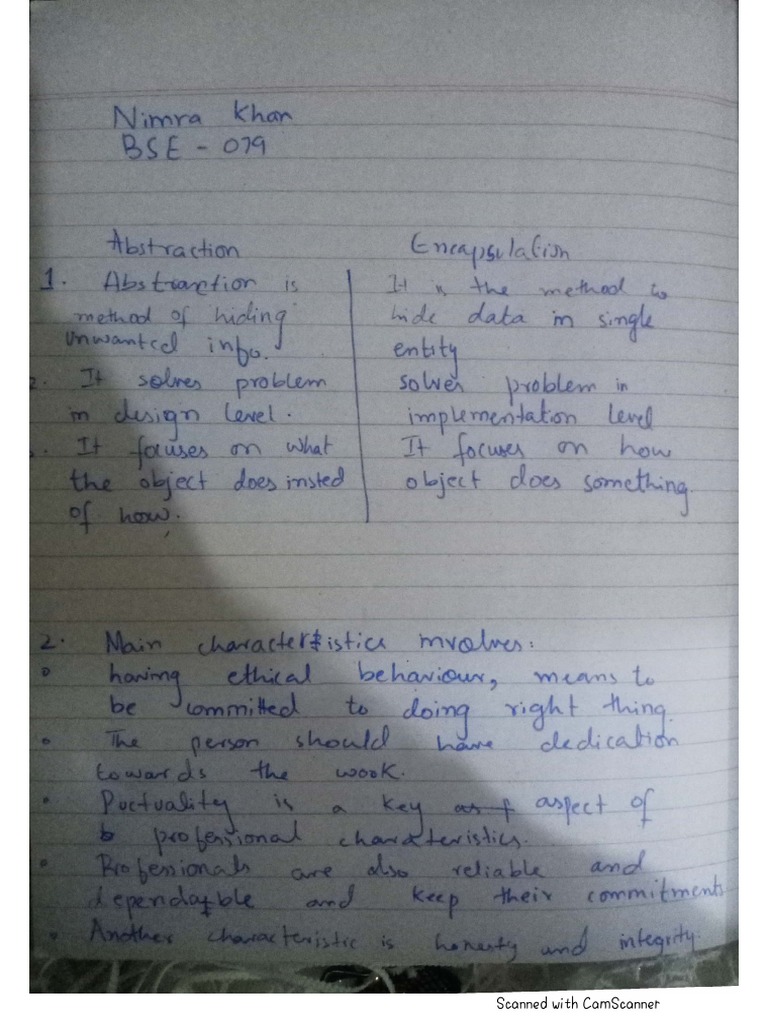 Nimra Khan
BSE - 079
Abstraction
1. Abstraction is
method of hiding
unwanted info.
2. It solves problem
in design level.
3. It focuses on what
the object does insted
of how.
Encapsulation
It is the method to
hide data in single
entity
solves problem in
implementation level
It focuses on how
object does something.
2. Main characteristics involves:
• having ethical behaviour, means to
be committed to doing right thing.
• The person should have dedication
towards the work.
• Puctuality is a key aspect of
professional characteristics.
• Professionals are also reliable and
dependable and keep their commitments
• Another characteristic is honesty and integrity.
Scanned with CamScanner